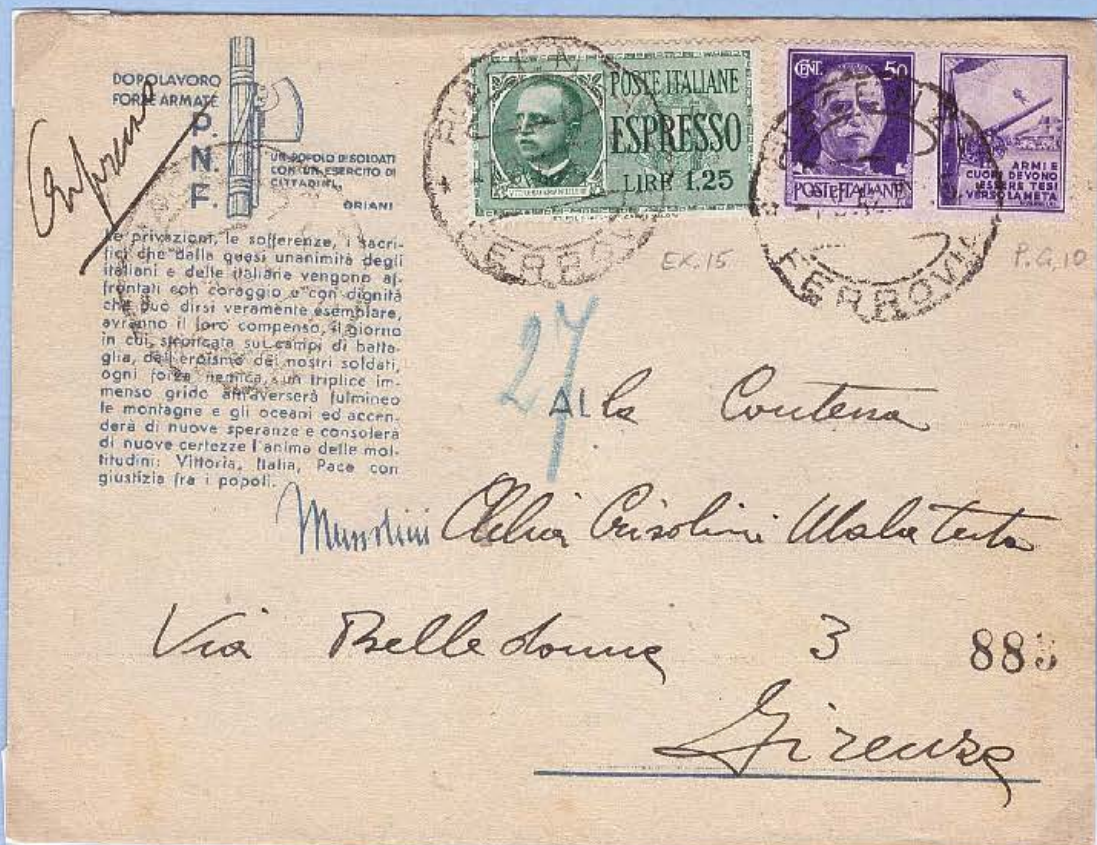 DOPOLAVORO
FORZE ARMATE
P.
N.
F.
UN POPOLO DI SOLDATI
CON UN ESERCITO DI
CITTADINI.
ORIANI
Espresso
Le privazioni, le sofferenze, i sacri-
fici che dalla quasi unanimità degli
italiani e delle italiane vengono af-
frontati con coraggio e con dignità
che può dirsi veramente esemplare,
avranno il loro compenso, il giorno
in cui, stroncata sui campi di batta-
glia, dall'eroismo dei nostri soldati,
ogni forza nemica, un triplice im-
menso grido attraverserà fulmineo
le montagne e gli oceani ed accen-
derà di nuove speranze e consolerà
di nuove certezze l'anima delle mol-
titudini: Vittoria, Italia, Pace con
giustizia fra i popoli.
Mussolini
POSTE ITALIANE
ESPRESSO
LIRE 1.25
CENT. 50
POSTE ITALIANE
ARMI E
CUORI DEVONO
ESSERE TESI
VERSO LA META
FERROVIA
FERROVIA
EX.15
P.G.10
27
Alla Contessa
Clelia Crisolini Malatesta
Via Belle donne 3
883
Firenze